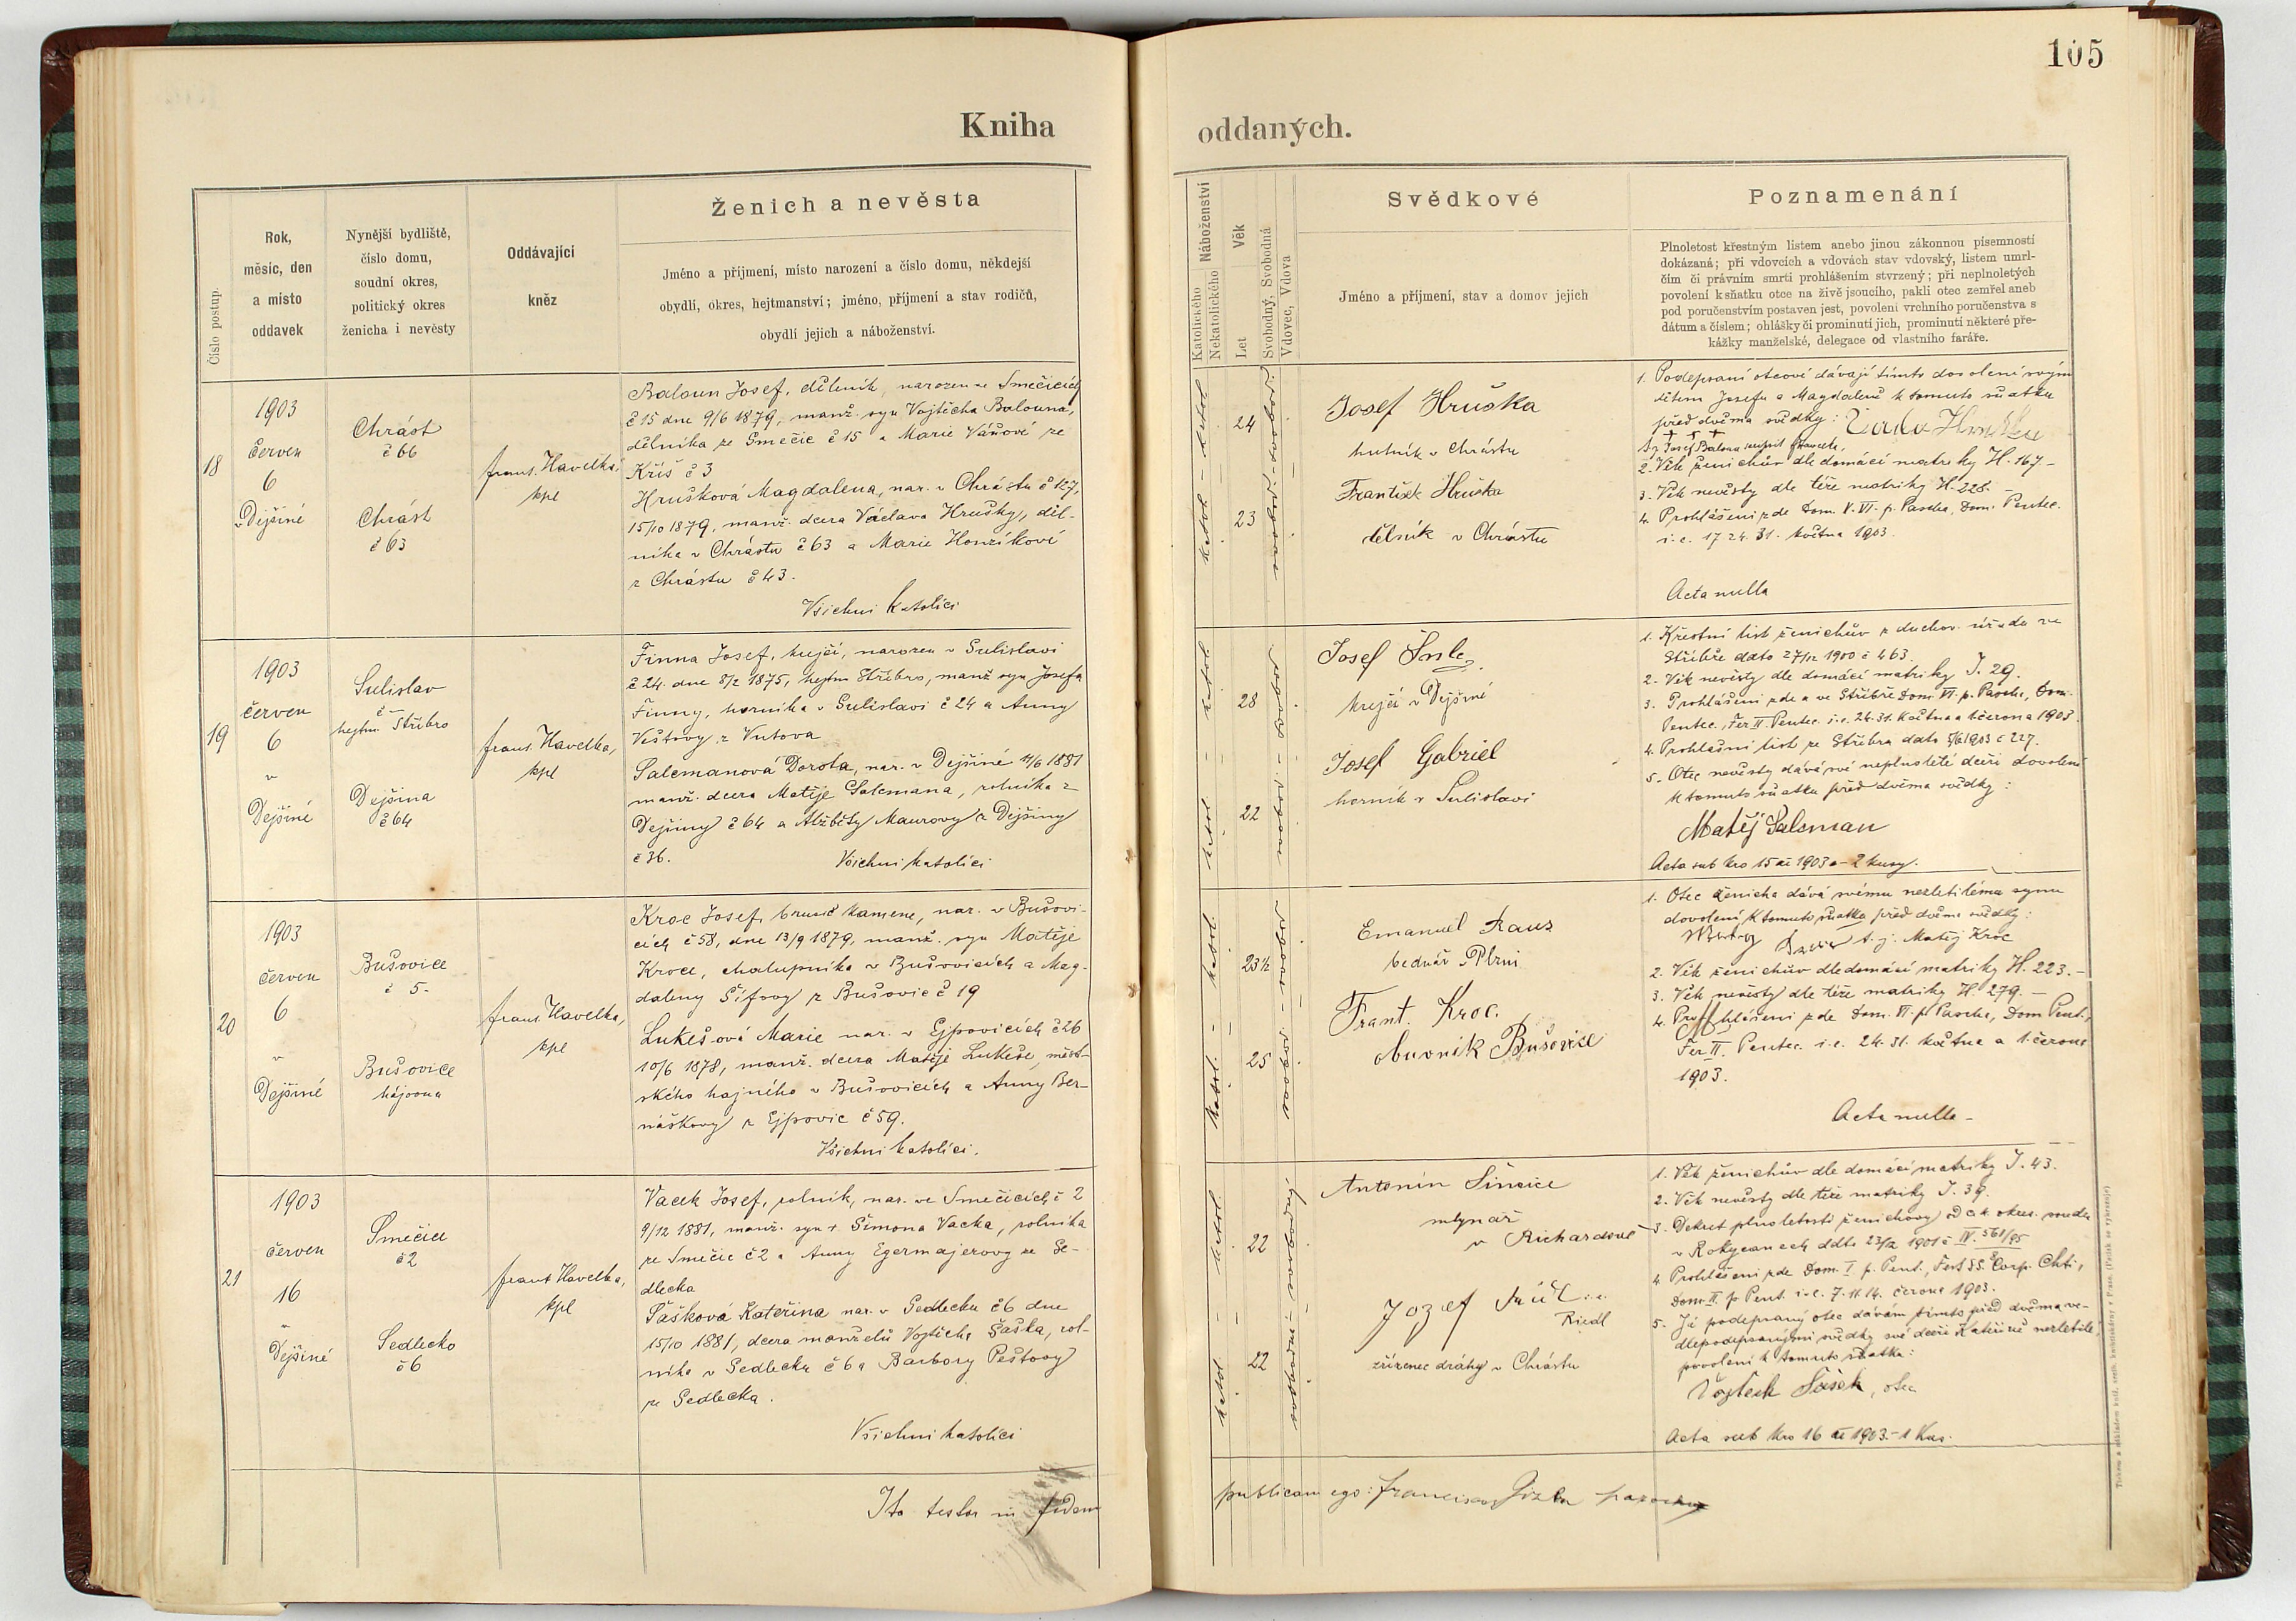 105
Kniha
oddaných.
Číslo postup.
Rok,
měsíc, den
a místo
oddavek
Nynější bydliště,
číslo domu,
soudní okres,
politický okres
ženicha i nevěsty
Oddávající
kněz
Ženich a nevěsta
Jméno a příjmení, místo narození a číslo domu, někdejší
obydlí, okres, hejtmanství; jméno, příjmení a stav rodičů,
obydlí jejich a náboženství.
Katolického
Nekatolického
Náboženství
Let
Věk
Svobodný, Svobodná
Vdovec, Vdova
Svědkové
Jméno a příjmení, stav a domov jejich
Poznamenání
Plnoletost křestným listem anebo jinou zákonnou písemností
dokázaná; při vdovcích a vdovách stav vdovský, listem umrl-
čím či právním smrti prohlášením stvrzený; při neplnoletých
povolení k sňatku otce na živě jsoucího, pakli otec zemřel aneb
pod poručenstvím postaven jest, povolení vrchního poručenstva s
dátum a číslem; ohlášky či prominutí jich, prominutí některé pře-
kážky manželské, delegace od vlastního faráře.
18
1903
červen
6
v Dejšině
Chrást
č 66
Chrást
č 63
frant. Havelka,
kpl
Baloun Josef, dělník, narozen ve Smečicích
č 15 dne 9/6 1879, manž. syn Vojtěcha Balouna,
dělníka ze Smečic č 15 a Marie Váňové ze
Kříš č 3
Hrušková Magdalena, nar. v Chrástu č 127,
15/10 1879, manž. dcera Václava Hrušky, děl-
níka v Chrástu č 63 a Marie Honzíkové
z Chrástu č 43.
Všichni katolíci
katol. - katol.
24
23
svobod. - svobod.
Josef Hruška
hutník v Chrástu
František Hruška
dělník v Chrástu
1. Podepsaní otcové dávají tímto dovolení svým
dětem Josefu a Magdaleně k tomuto sňatku
před dvěma svědky:
+ + +
2. Věk ženichův dle domácí matriky H. 167 -
3. Věk nevěsty dle téže matriky H. 228. -
4. Prohlášení zde Dom. V. VI. p. Pascha, Dom. Pentec.
i. e. 17. 24. 31. května 1903.
Acta nulla
19
1903
červen
6
v
Dejšině
Sulislav
č -
hejtm. Stříbro
Dejšina
č 64
frant. Havelka,
kpl
Finna Josef, krejčí, narozen v Sulislavi
č 24. dne 8/2 1875, hejtm Stříbro, manž syn Josefa
Finny, horníka v Sulislavi č 24 a Anny
Veštovy z Vutova
Salcmanová Dorota, nar. v Dejšině 14/6 1881
manž. dcera Matěje Salcmana, rolníka z
Dejšiny č 64 a Alžběty Maurovy z Dejšiny
č 36.
Všichni katolíci
katol. - katol.
28
22
svobod. - svobod.
Josef
krejčí v Dejšině
Josef Gabriel
horník v Sulislavi
1. Křestní list ženichův z duchov. úřadu ve
Stříbře dato 27/12 1900 č 463.
2. Věk nevěsty dle domácí matriky I. 29.
3. Prohlášení zde a ve Stříbře Dom. VI. p. Pascha, Dom.
Pentec., Fer II Pentec. i. e. 24. 31. května a 1 června 1903.
4. Prohlašní list ze Stříbra dato 5/6 1903 č 227.
5. Otec nevěsty dává své neplnoleté dceři dovolení
k tomuto sňatku před dvěma svědky:
Matěj Salcman
Acta sub Nro 15 ai 1903 - 2 kusy.
20
1903
červen
6
v
Dejšině
Bušovice
č 5.
Bušovice
hájovna
frant. Havelka,
kpl
Kroc Josef, brusič kamene, nar. v Bušovi-
cích č 58, dne 13/9 1879, manž. syn Matěje
Kroce, chalupníka v Bušovicích a Mag-
daleny Šífovy z Bušovic č 19
Lukešová Marie nar. v Ejpovicích č 26
10/6 1878, manž. dcera Matěje Lukeše, měst-
ského hajného v Bušovicích a Anny Ber-
náškovy z Ejpovic č 59.
Všichni katolíci.
katol. - katol.
23 1/2
25
svobod. - svobod.
Emanuel Rauz
bednář Plzni
Frant. Kroc.
obuvník Bušovice
1. Otec ženicha dává svému nezletilému synu
dovolení k tomuto sňatku před dvěma svědky:
t. j. Matěj Kroc
2. Věk ženichův dle domácí matriky H. 223. -
3. Věk nevěsty dle téže matriky H. 279. -
4. Prohlášení zde Dom. VI. p. Pascha, Dom Pent.,
Fer II. Pentec. i. e. 24. 31. května a 1. června
1903.
Acta nulla -
21
1903
červen
16
v
Dejšině
Smečice
č 2
Sedlecko
č 6
frant Havelka,
kpl
Vacek Josef, rolník, nar. ve Smečicích č 2
9/12 1881, manž. syn + Šimona Vacka, rolníka
ze Smečic č 2 a Anny Egermajerovy ze Se-
dlecka
Šašková Kateřina nar. v Sedlecku č 6 dne
15/10 1881, dcera manželů Vojtěcha Šaška, rol-
níka v Sedlecku č 6 a Barbory Peštovy
ze Sedlecka.
Všichni katolíci
katol. - katol.
22
22
svobodní - svobodný
Antonín Sinvice
mlynář
v Richardově
Jozef
Riedl
zřízenec dráhy v Chrástu
1. Věk ženichův dle domácí matriky I. 43.
2. Věk nevěsty dle téže matriky I. 39.
3. Dekret plnoletosti ženichovy od c.k. okres. soudu
v Rokycanech ddto 23/12 1901 č IV. 561/95
4. Prohlášení zde Dom. I p. Pent., Fest SS. Corp. Chti,
Dom. II. p Pent. i. e. 7. 11. 14. června 1903.
5. Já podepsaný otec dávám tímto před dvěma ve-
dlepodepsanými svědky své dceři Kateřině nezletilé,
povolení k tomuto sňatku:
Vojtěch Šašek, otec
Acta sub Nro 16 ai 1903. - 1 kus.
Ita testor in fidem
publicam ego: Franciscus parochus